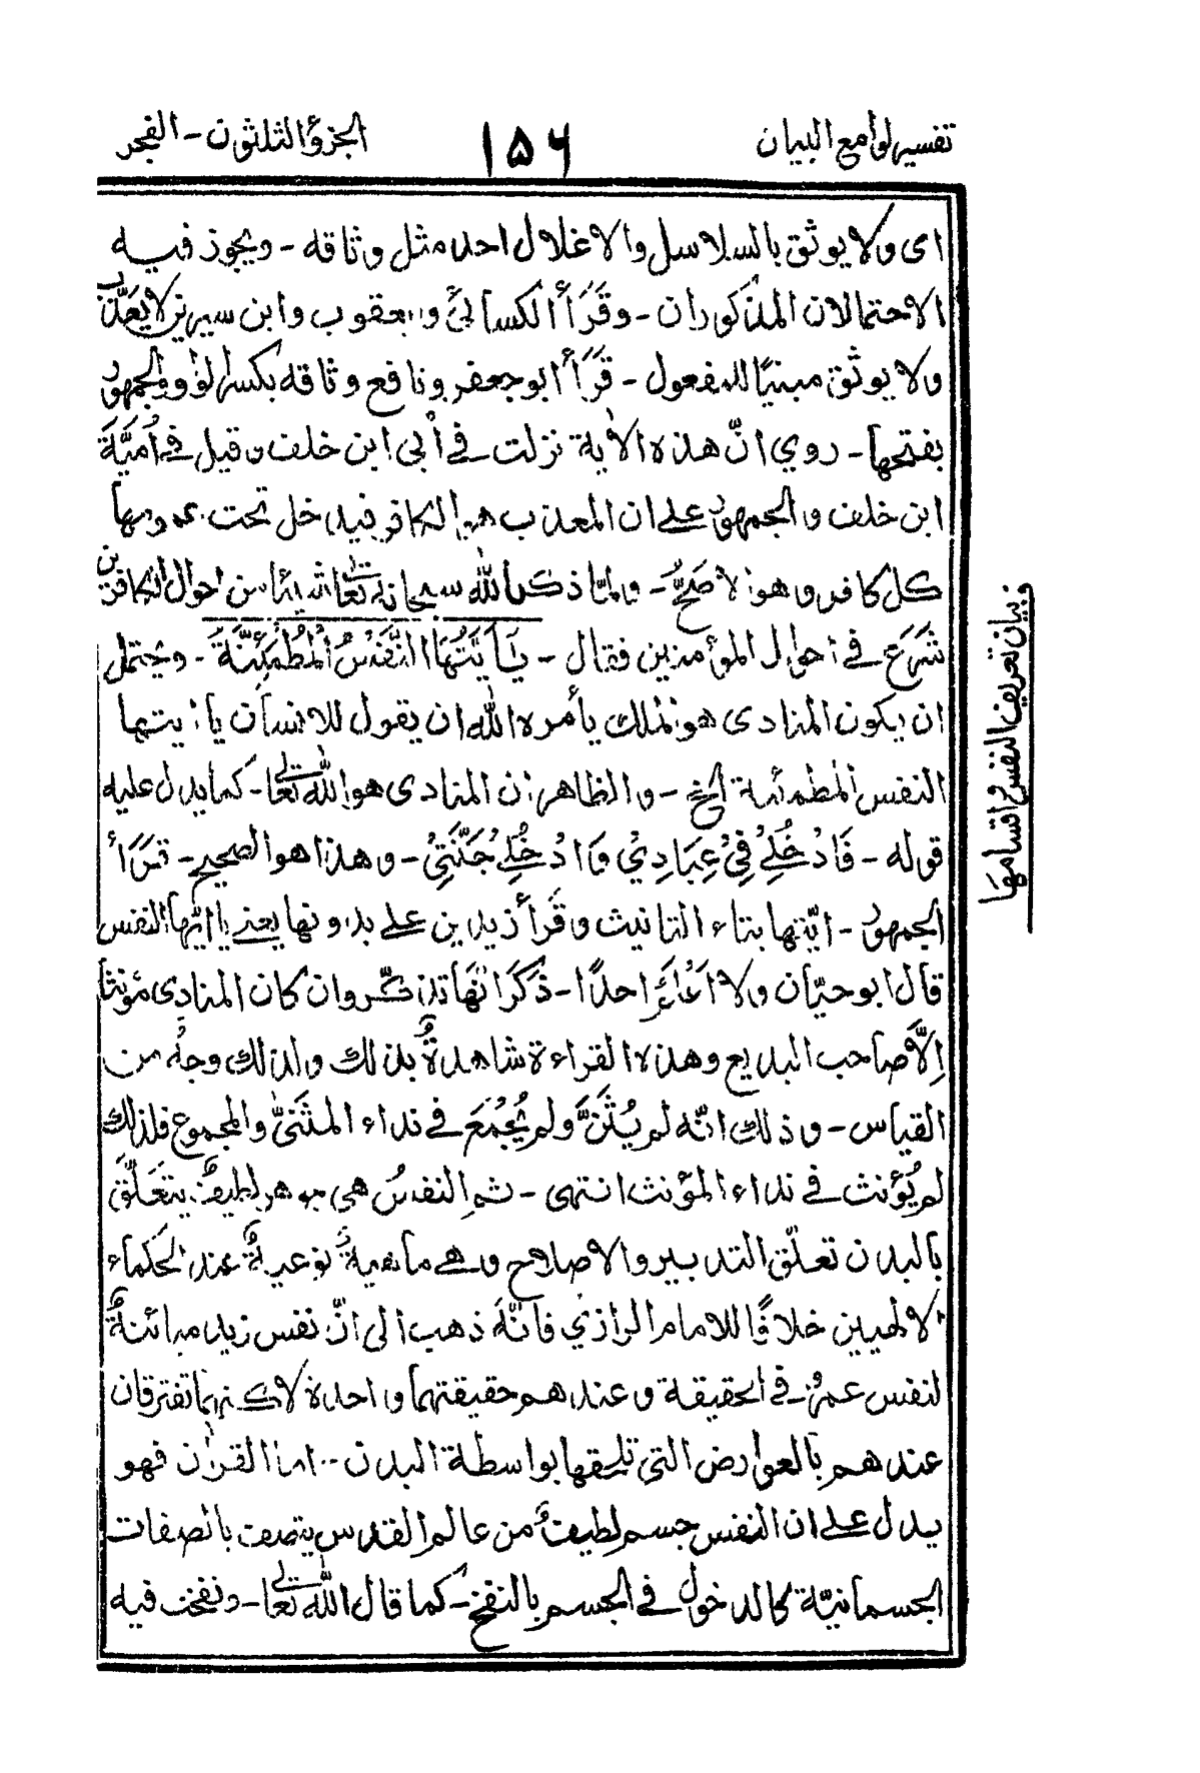 تفسير لوامع البيان
١٥٦
الجزؤ الثلثون - الفجر
اى ولا يوثق بالسلاسل والاغلال احد مثل وثاقه - ويجوز فيه
الاحتمالان المذكوران - وقَرَأ الكسائى ويعقوب وابن سيرين لا يعذّب
ولا يوثق مبنيًا للمفعول - قَرَأ ابو جعفر ونافع وثاقه بكسر الواو والجمهور
بفتحها - روي انّ هذه الاٰية نزلت في اُبى ابن خلف وقيل في اُمَيَّةَ
ابن خلف والجمهور على ان المعذب هو الكافر فيدخل تحت عمومها
كل كافر وهو الاصَحُّ - ولمّا ذكر الله سبحانه تعالى شيئا من احوال الكافرين
شَرَعَ في احوال المؤمنين فقال - يَا اَيَّتُهَا النَّفْسُ الْمُطْمَئِنَّةُ - ويحتمل
ان يكون المنادى هو الملك يأمره الله ان يقول للانسان يا ايتها
النفس المطمئنة الخ - والظاهر ان المنادى هو الله تعالى - كما يدل عليه
قوله - فَادْخُلِيْ فِيْ عِبَادِيْ وَادْخُلِيْ جَنَّتِيْ - وهذا هو الصحيح - قَرَأ
الجمهور - ايّتها بتاء التانيث وقَرَأ زيد بن على بدونها يعني يا ايّها النفس
قال ابو حيّان ولا اَعْلَمُ احدًا - ذَكَرَ انّها تذكّر وان كان المنادى مؤنثا
اِلّا صاحب البديع وهذه القراءة شاهدةٌ بذلك ولذلك وجهٌ من
القياس - وذلك انّه لم يُثَنَّ ولم يُجْمَعْ في نداء المثنّٰى والمجموع فلذلك
لم يُؤنث في نداء المؤنث انتهى - ثم النفسُ هى جوهر لطيفٌ يتعَلَّقُ
بالبدن تعلّق التدبير والاصلاح وهي ماهيةٌ نوعيةٌ عند الحكماء
الالهيين خلافًا للامام الرازي فانّهٗ ذهب الى انّ نفس زيد مبائنةٌ
لنفس عمرو في الحقيقة وعندهم حقيقتهما واحدة لاكنهما تفترقان
عندهم بالعوارض التي تلحقها بواسطة البدن ٠٠ اما القراٰن فهو
يدل على ان النفس جسم لطيفٌ من عالم القدس يتصف بالصفات
الجسمانيّة كالدخول في الجسم بالنفخ - كما قال الله تعالى - ونفخت فيه
وبيان تعريف النفس واقسامها